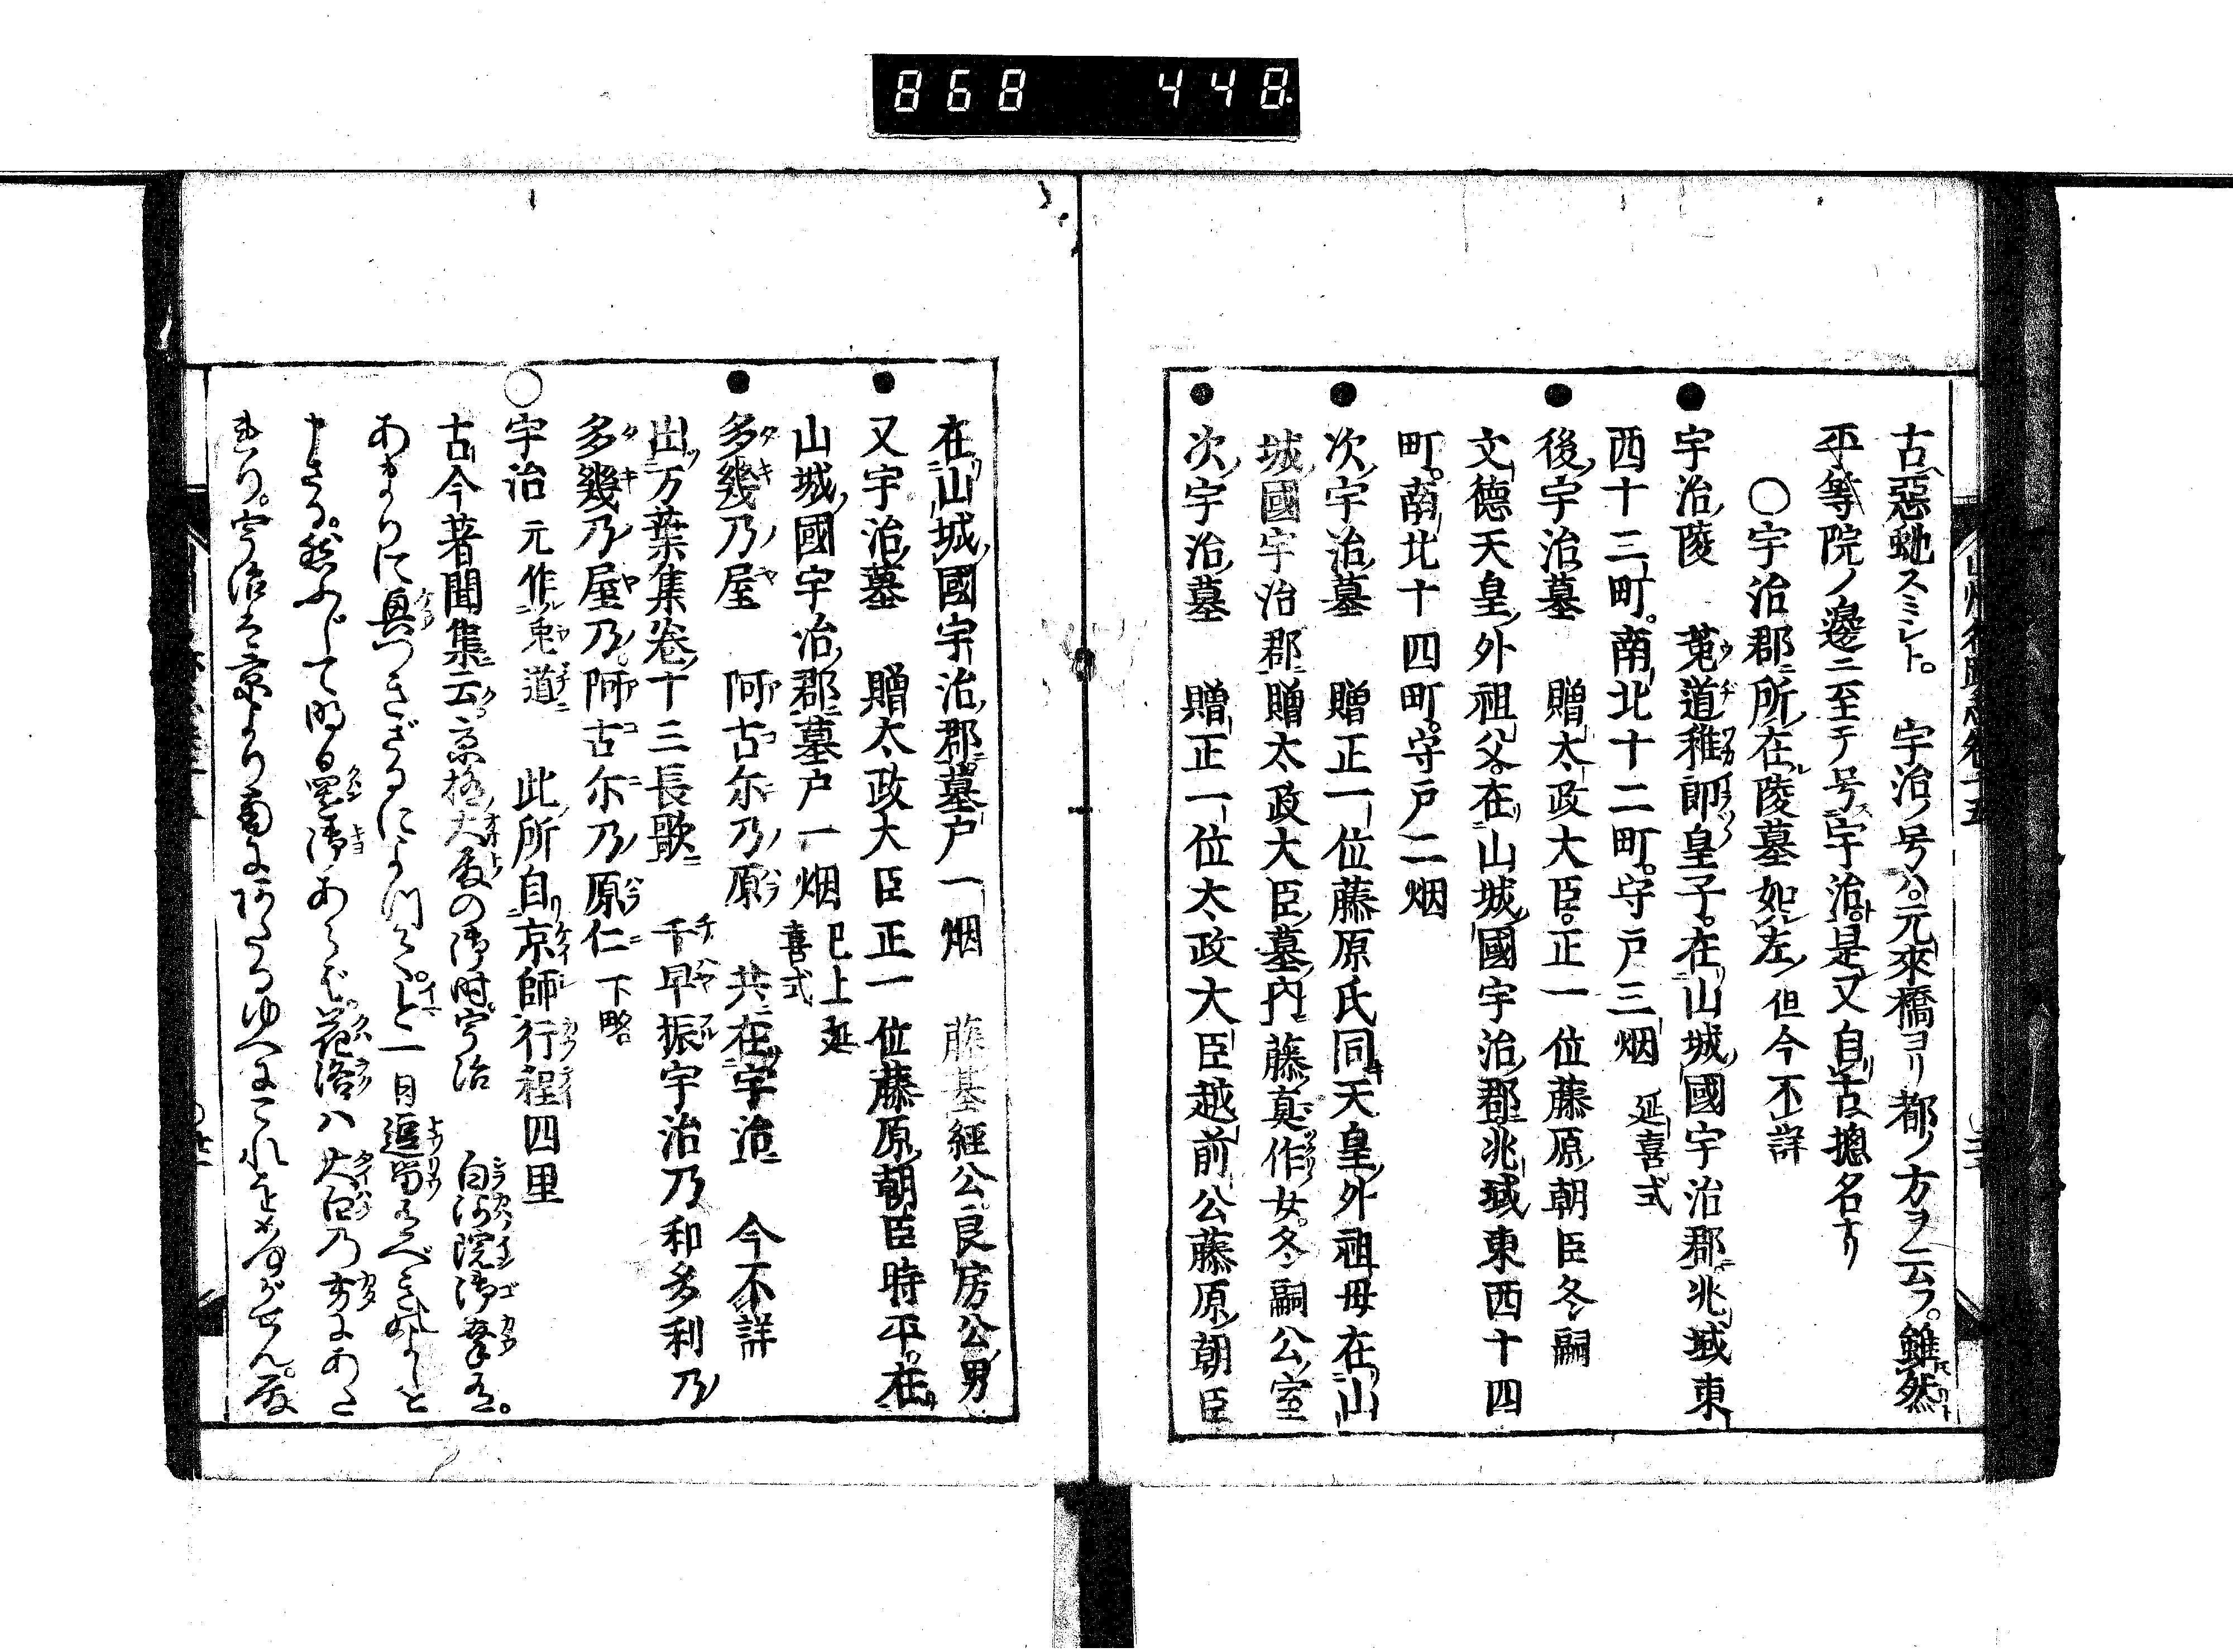 868 448
古惡虵スミシト。 宇治ノ号ハ。元來橋ヨリ都ノ方ヲ云フ。雖然
平等院ノ邊ニ至テ号宇治。是又自古摠名ナリ
○宇治郡所在陵墓如左 但今不詳
●宇治陵 菟道稚郎皇子。在山城國宇治郡兆域東
西十三町。南北十二町。守戸三烟 延喜式
●後宇治墓 贈太政大臣。正一位藤原朝臣冬嗣
文德天皇外祖父。在山城國宇治郡兆域東西十四
町。南北十四町。守戸二烟
●次宇治墓 贈正一位藤原氏同天皇外祖母在山
城國宇治郡贈太政大臣墓内藤眞作女。冬嗣公室
●次宇治墓 贈正一位太政大臣越前公藤原朝臣
在山城國宇治郡。墓户一烟 藤基經公良房公男
●又宇治墓 贈太政大臣正一位藤原朝臣時平在
山城國宇治郡墓户一烟 已上延喜式
●多幾乃屋 阿古尓乃原 共在宇治 今不詳
出万葉集卷十三長歌 千早振宇治乃和多利乃
多幾乃屋乃。阿古尓乃原仁 下略
○宇治 元作兎道 此所自京師行程四里
古今著聞集云京極大殿の御時。宇治 白河院御幸有。
あまりに興つきざるによりて。と一日逗留有べきよしと
申さる。然ふして明日還御あらば。花洛ハ大白乃方にあた
れり。宇治は京より南にあたるゆへにこれをめすがせん。殿